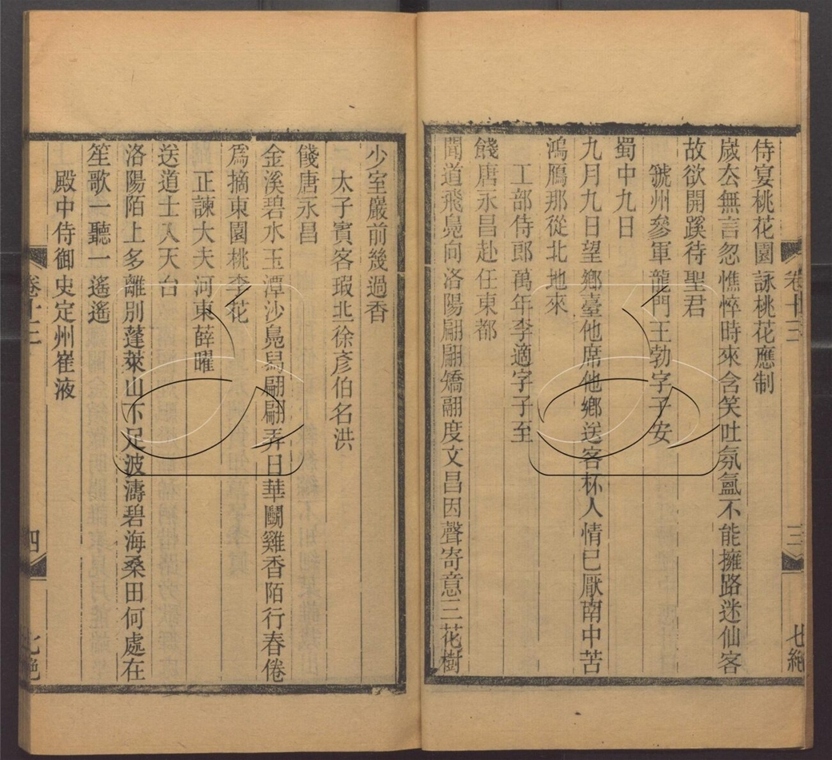 卷十三 三 七絕
侍宴桃花園詠桃花應制
歲去無言忽憔悴時來含笑吐氛氳不能擁路迷仙客
故欲開蹊待聖君
虢州參軍龍門王勃字子安
蜀中九日
九月九日望鄉臺他席他鄉送客杯人情已厭南中苦
鴻鴈那從北地來
工部侍郎萬年李適字子至
餞唐永昌赴任東都
聞道飛鳧向洛陽翩翩矯翮度文昌因聲寄意三花樹
少室巖前幾過香
太子賓客瑕北徐彥伯名洪
餞唐永昌
金溪碧水玉潭沙鳧舄翩翩弄日華鬭雞香陌行春倦
爲摘東園桃李花
正諫大夫河東薛曜
送道士入天台
洛陽陌上多離別蓬萊山下足波濤碧海桑田何處在
笙歌一聽一遙遙
殿中侍御史定州崔液
卷十三 四 七絕